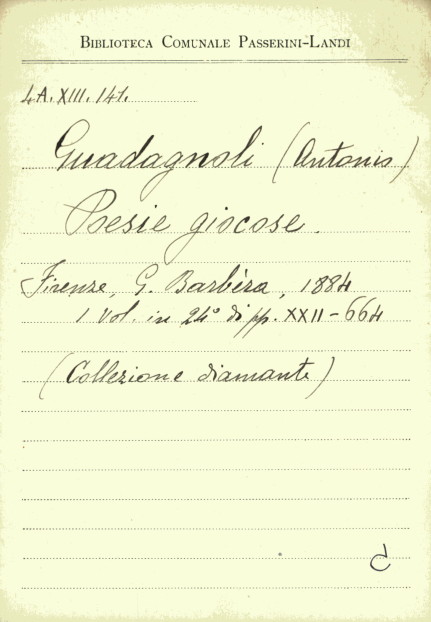 BIBLIOTECA COMUNALE PASSERINI-LANDI
4A.XIII.141.
Guadagnoli (Antonio)
Poesie giocose.
Firenze, G. Barbèra, 1884
1 vol. in 24° di pp. XXII-664
(Collezione diamante)